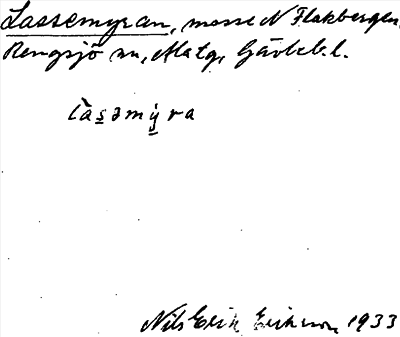 Lassemyran, mosse N Flakbergen,
Rengsjö sn, Matg, Gävleb. l.
làs̲əmỳ̲ra
Nils Erik Erikson 1933